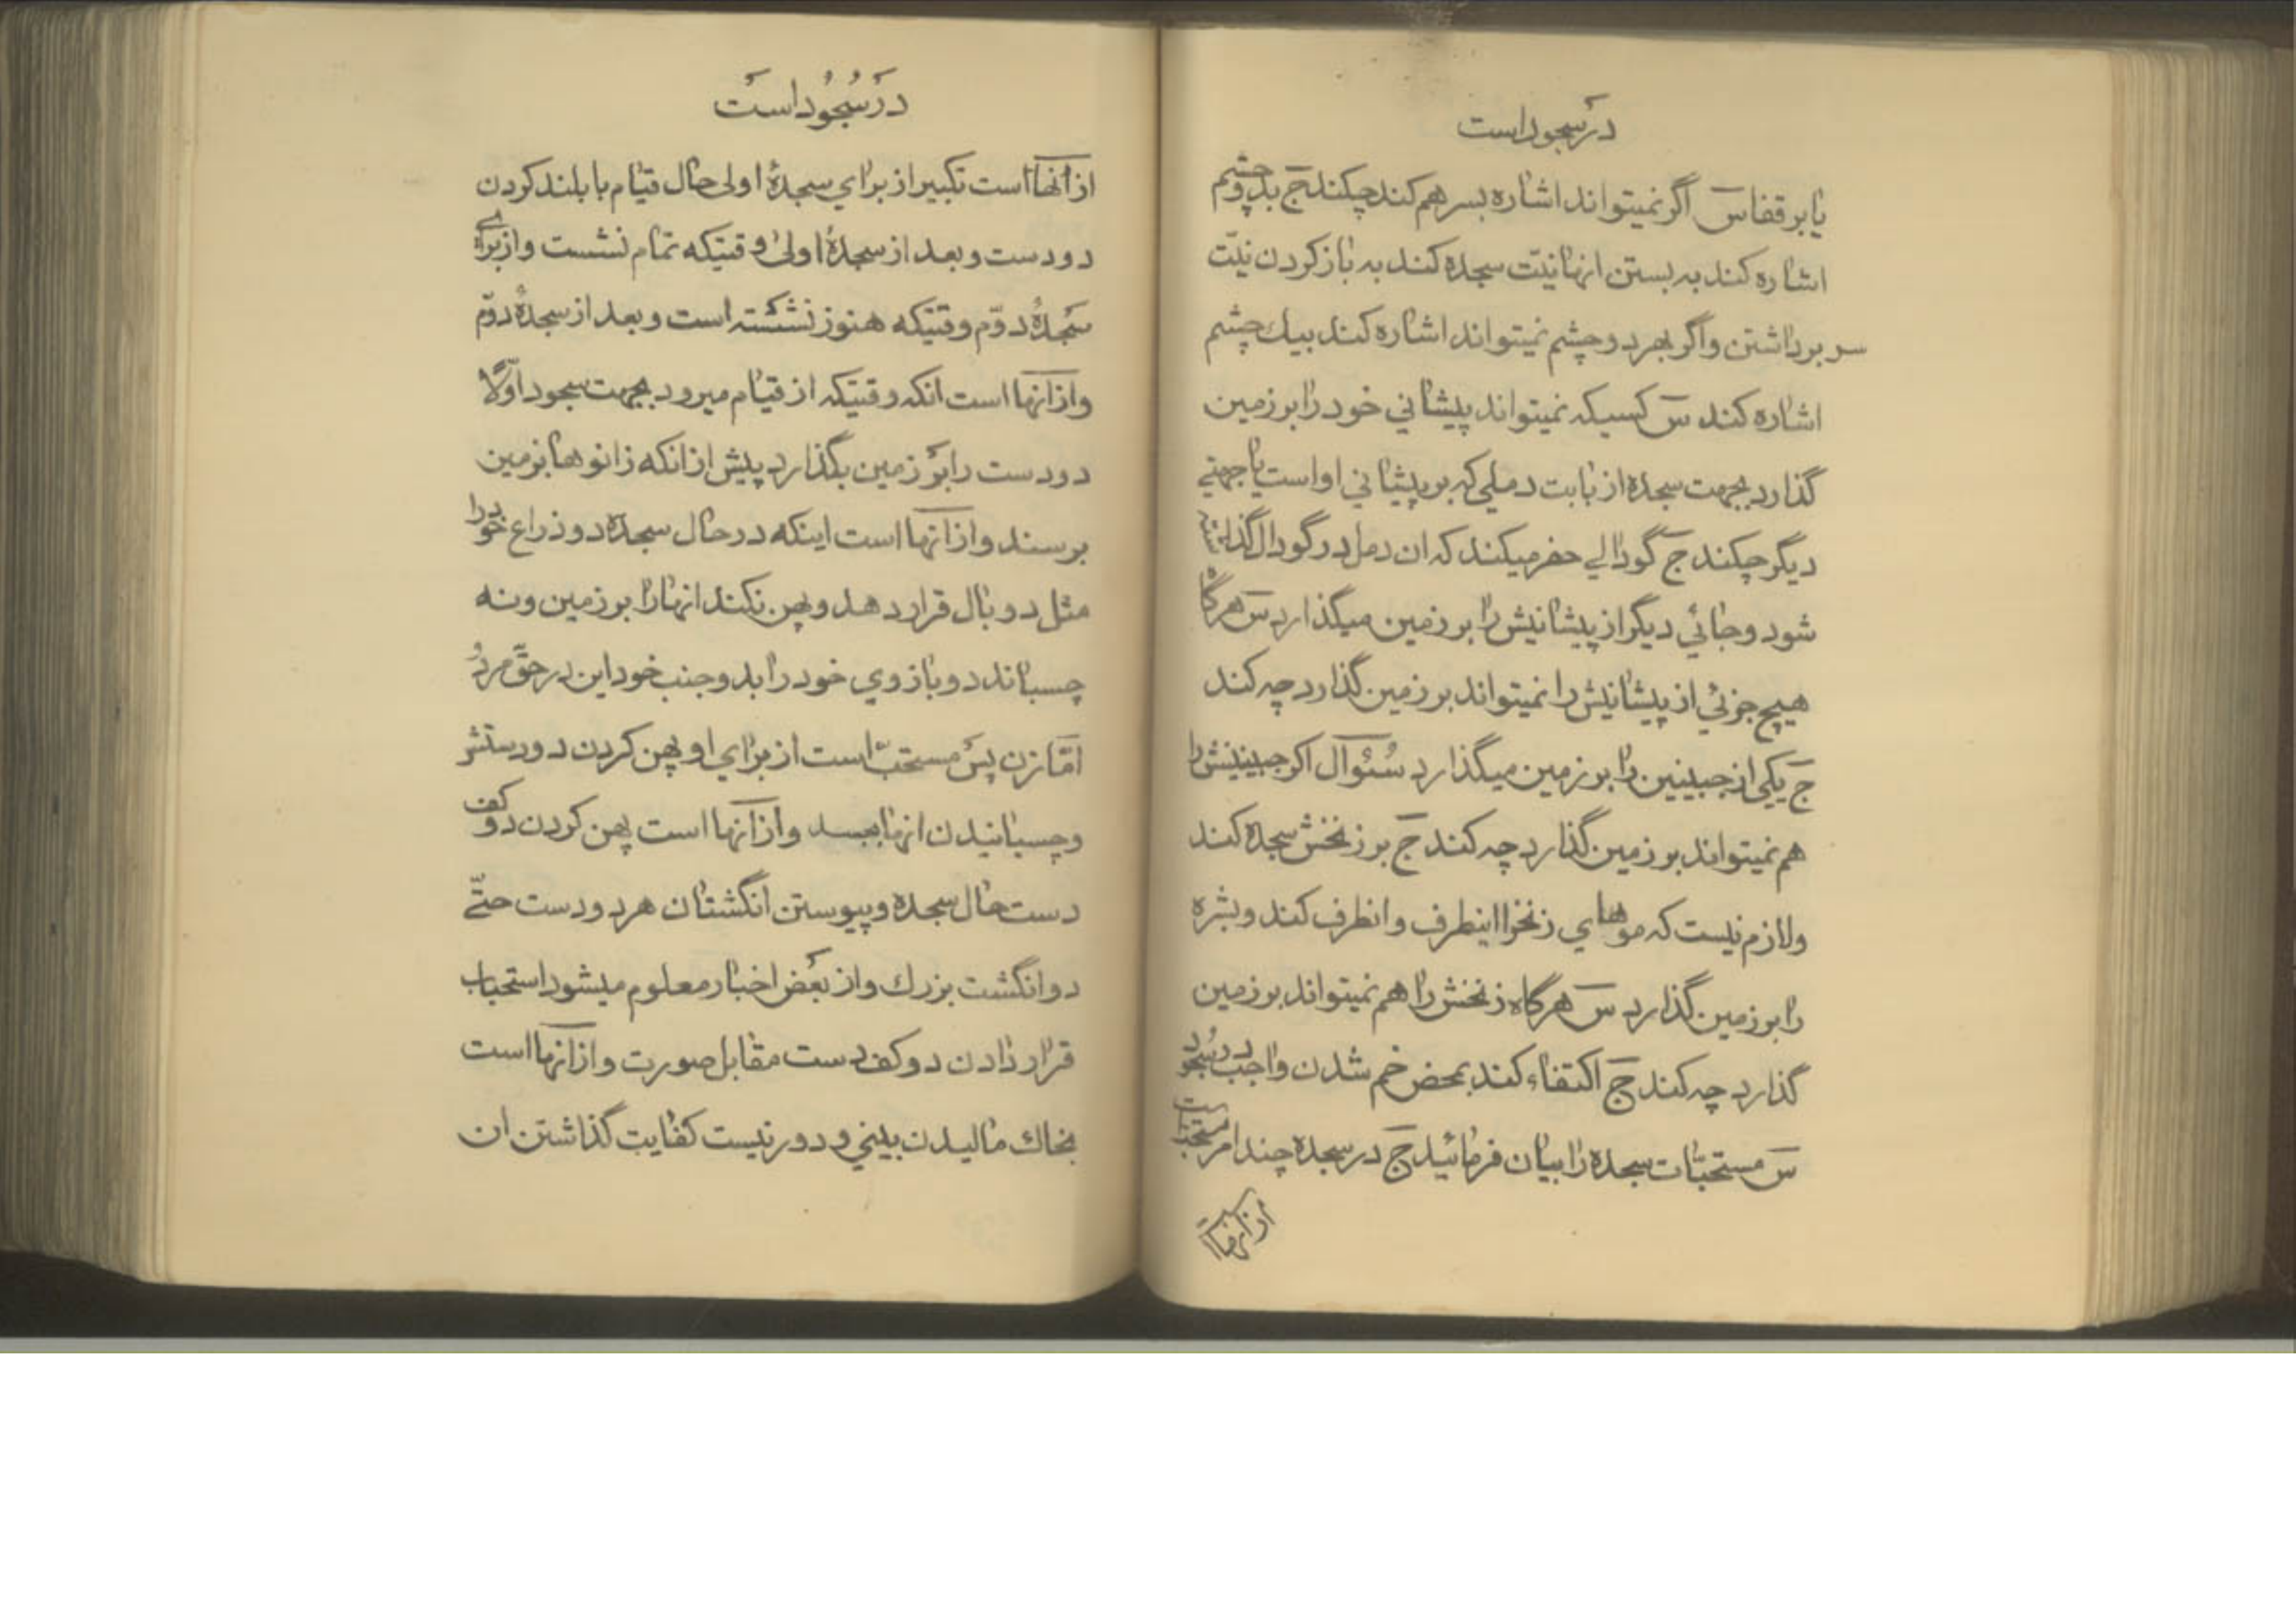 در سجود است
یا بر قفا سَ اگر نمیتواند اشاره بسر هم کند چکند جَ بدو چشم
اشاره کند به بستن انها نیّت سجده کند به باز کردن نیّت
سر برداشتن و اگر بهر دو چشم نمیتواند اشاره کند بیك چشم
اشاره کند سَ کسیکه نمیتواند پیشانی خود را بر زمین
گذارد بجهت سجده از بابت دملی که بر پیشانی او است یا جهتی
دیگر چکند جَ گودالی حفر میکند که ان دمل در گودال گذارده
شود و جائی دیگر از پیشانیش را بر زمین میگذارد سَ هرگاه
هیچ جزئی از پیشانیش را نمیتواند بر زمین گذارد چه کند
جَ یکی از جبینین را بر زمین میگذارد سُئوآل اکر جبینیش را
هم نمیتواند بر زمین گذارد چه کند جَ بر زنخش سجده کند
و لازم نیست که موهای زنخرا اینطرف و انطرف کند و بشره
را بر زمین گذارد سَ هرگاه زنخش را هم نمیتواند بر زمین
گذارد چه کند جَ اکتفاء کند بمحض خم شدن واجب در سُجُود
سَ مستحبّات سجده را بیان فرمائید جَ در سجده چند امر مستحبّ است
از آنهَا
در سُجُود است
از آنهَا است تکبیر از برای سجدهٔ اولی حال قیام با بلند کردن
دو دست و بعد از سجدهٔ اولی وقتیکه تمام نشست و از برای
سجدهٔ دوّم وقتیکه هنوز ننشسته است و بعد از سجدهٔ دوّم
و از آنها است انکه وقتیکه از قیام میرود بجهت سجود اوّلا
دو دست را بر زمین بگذارد پیش از انکه زانوها بزمین
برسند و از آنها است اینکه در حال سجده دو ذراع خود را
مثل دو بال قرار دهد و پهن نکند انها را بر زمین و نه
چسباند دو بازوی خود را بدو جنب خود این در حقّ مرد
امّا زن پس مستحبّ است از برای او پهن کردن دو دستش
و چسبانیدن انها بجسد و از آنها است پهن کردن دو کف
دست حال سجده و پیوستن انگشتان هر دو دست حتّی
دو انگشت بزرك و از بعض اخبار معلوم میشود استحباب
قرار دادن دو کف دست مقابل صورت و از آنها است
بخاك مالیدن بینی و دور نیست کفایت گذاشتن ان